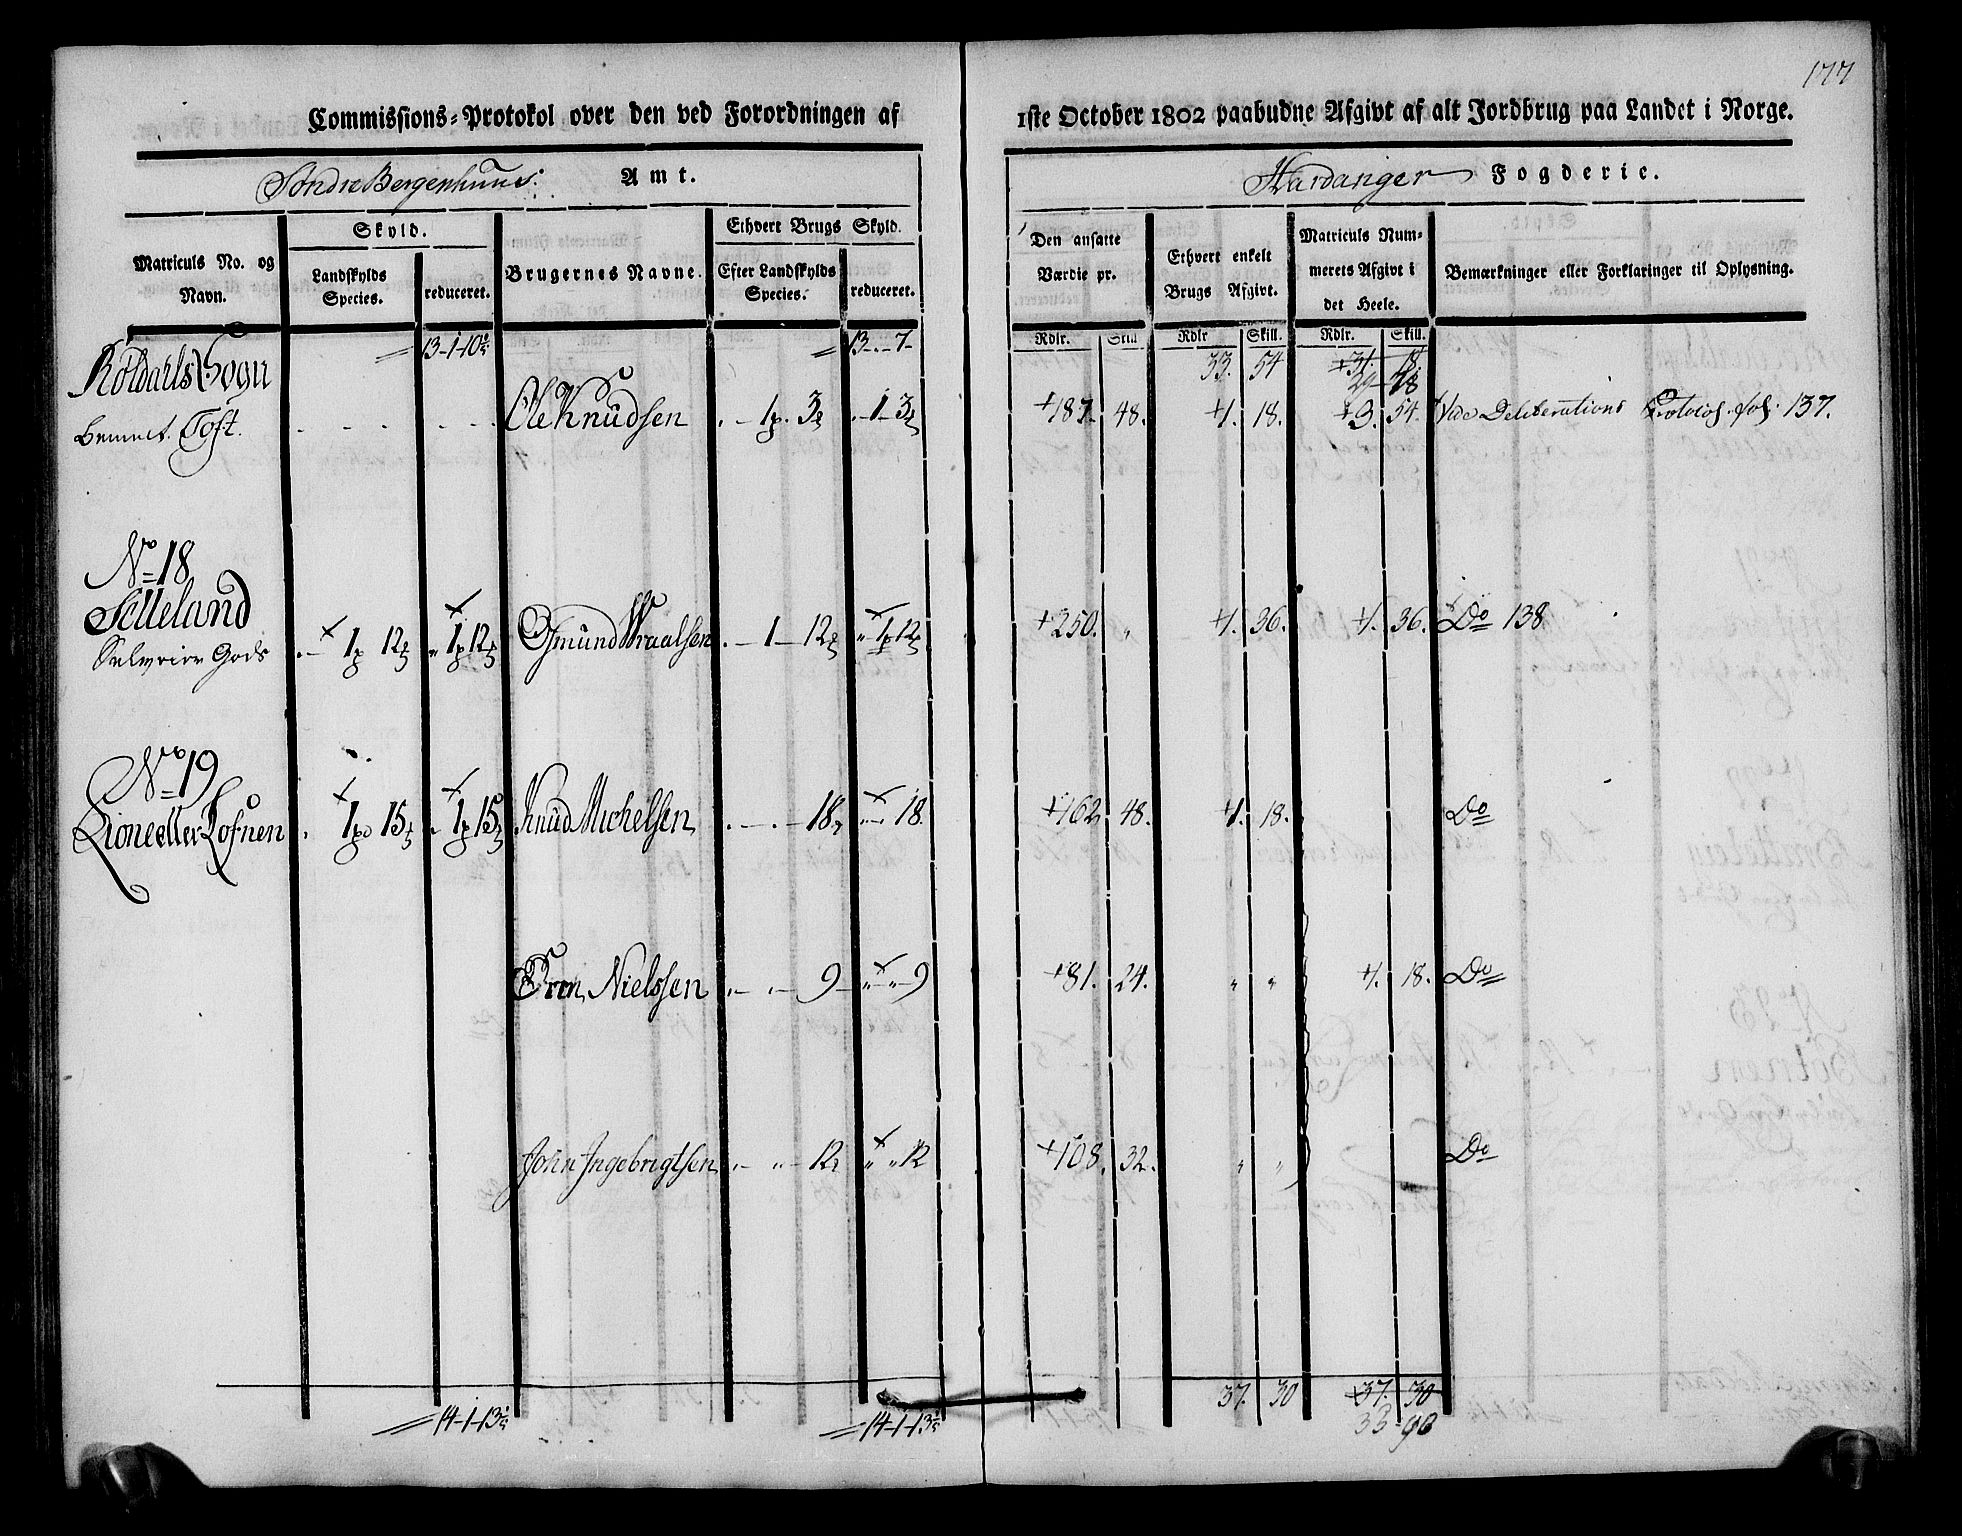 177
Commissions-Protokol over den ved Forordningen af 1ste October 1802 paabudne Afgivt af alt Jordbrug paa Landet i Norge.
Søndre Bergenhuus Amt. Hardanger Fogderie.
Matriculs No. og Navn.
Skyld.
Landskylds Species.
reduceret.
Brugernes Navne.
Ethvert Brugs Skyld.
Efter Landskylds Species.
reduceret.
Den ansatte Værdie pr.
Ethvert enkelt Brugs Afgivt.
Matriculs Nummerets Afgivt i det Heele.
Bemærkninger eller Forklaringer til Oplysning.
Rdlr. Skill. Rdlr Skill. Rdlr. Skill.
Røldahls Sogn 13-1-10½ 13 - 7 - 33. 54 31. 18
29 18
Toft. Ole Knudsen 1 3 1 3 187. 48. 1. 18. 3. 54. Vide Deliberations Protocol fol. 137.
No 18
Selleland
Gods 1 12 1 12 Osmund Wraalsen 1 12 1 12 250. " 1. 36. 1. 36. Do 138
No 19
Lione eller Lofnen 1 15 1 15 Knud Michelsen 18 18. 162 48. 1. 18. Do
Orm Nielssen 9 9 81. 24. " " 1. 18. Do
John Ingebrigtsen 12 12 108. 32. " " Do
14-1-13½ 14-1-13½ 37. 30 37. 30
33-90